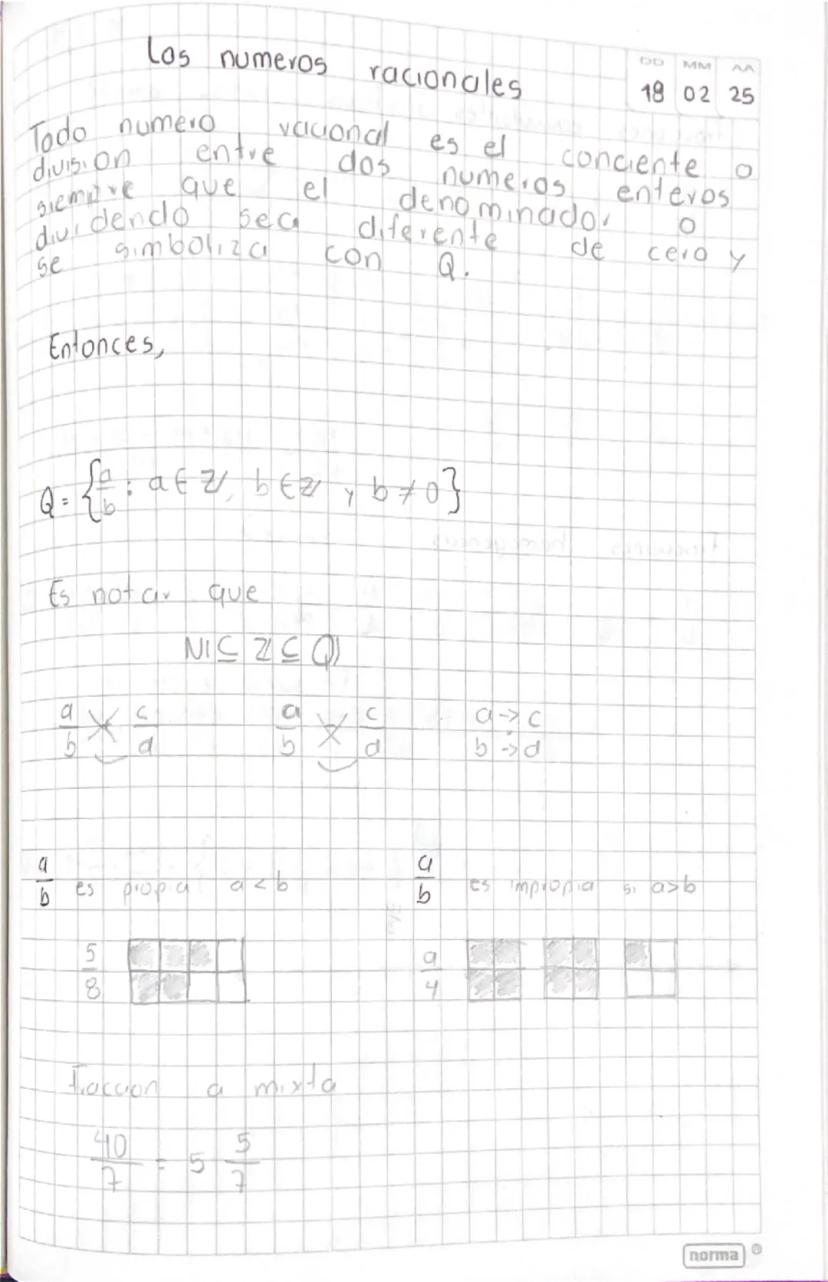 Los numeros racionales
DD MM AA
18 02 25
Todo numero racional es el conciente o
division entre dos numeros enteros
siempre que el denominador o
dividendo sea diferente de cero y
se simboliza con Q.
Entonces,
Q = {a/b : a ∈ Z, b ∈ Z y b ≠ 0}
Es notar que
N ⊆ Z ⊆ Q
a/b c/d a/b c/d a -> c
b -> d
a/b es propia a < b a/b es impropia si a > b
5/8 9/4
Fraccion a mixta
40/7 = 5 5/7
norma